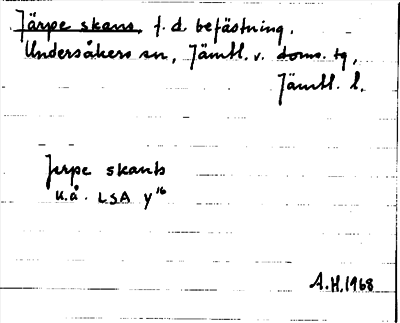 Järpe skans, f. d. befästning,
Undersåkers sn, Jämtl. v. doms. tg,
Jämtl. l.
Jerpe skants
u.å. LSA Y¹⁶
A.H. 1968